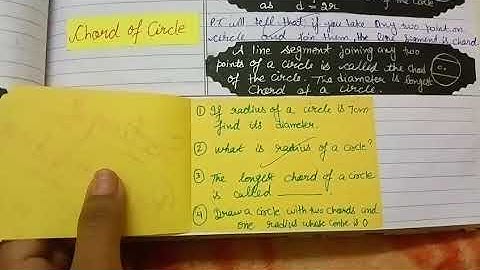 as d = 2r
Chord of Circle
P.T. will tell that if you take any two point on
circle and join them the line segment is chord
A line segment joining any two
points of a circle is called the chord
of the circle. The diameter is longest
Chord of a circle.
① If radius of a circle is 7cm
find its diameter.
② What is radius of a circle?
③ The longest chord of a circle
is called
④ Draw a circle with two chords and
one radius whose centre is O